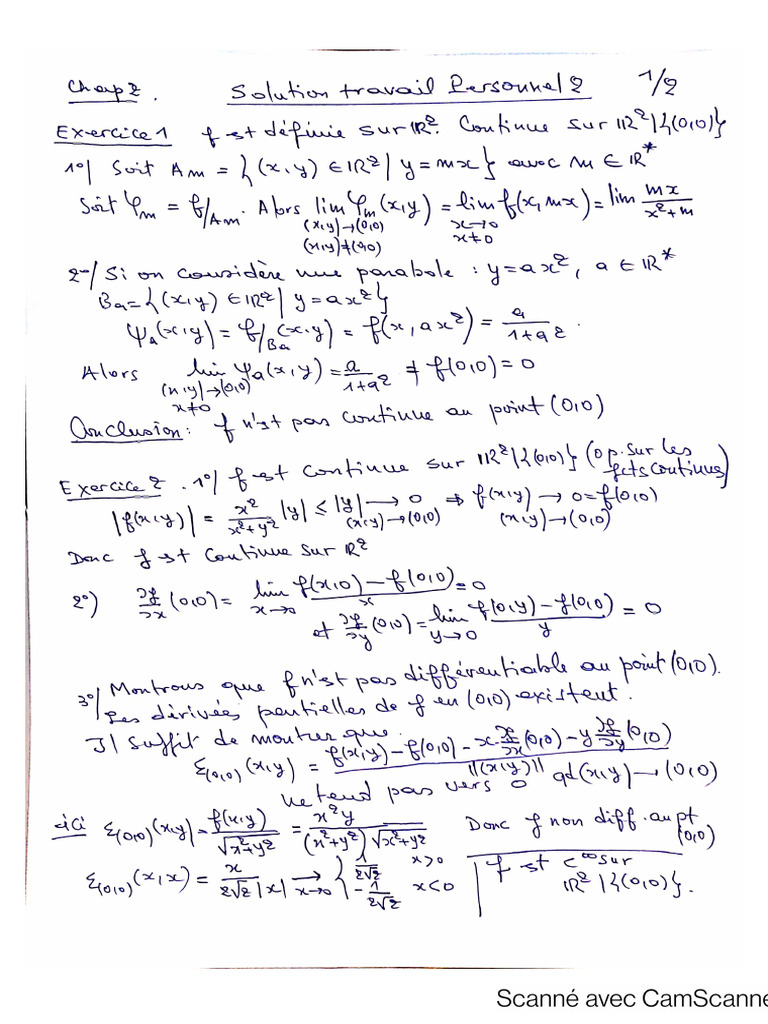 Chap 2. Solution travail Personnel 2 1/2
Exercice 1 f est définie sur IR². Continue sur IR²\{(0,0)}
1°/ Soit Am = {(x,y) ∈ IR² | y = mx} avec m ∈ IR*
Soit φm = f/Am. Alors lim φm(x,y) = lim f(x,mx) = lim mx/(x²+m
(x,y)→(0,0) x→0
(x,y)≠(0,0) x≠0
2°/ Si on considère une parabole : y = ax², a ∈ IR*
Ba = {(x,y) ∈ IR² | y = ax²}
Ψa(x,y) = f/Ba(x,y) = f(x,ax²) = a/(1+a²).
Alors lim φa(x,y) = a/(1+a²) ≠ f(0,0) = 0
(x,y)→(0,0)
x≠0
Conclusion : f n'est pas continue au point (0,0)
Exercice 2. 1°/ f est continue sur IR²\{(0,0)} (op. sur les
fcts continues)
|f(x,y)| = x²/(x²+y²) |y| ≤ |y| → 0 ⇒ f(x,y) → 0 = f(0,0)
(x,y)→(0,0) (x,y)→(0,0)
Donc f est continue sur IR²
2°) ∂f/∂x (0,0) = lim x→0 (f(x,0) − f(0,0))/x = 0
et ∂f/∂y (0,0) = lim y→0 (f(0,y) − f(0,0))/y = 0
3°/ Montrons que f n'est pas différentiable au point (0,0).
Les dérivées partielles de f en (0,0) existent.
Il suffit de montrer que
ε(0,0)(x,y) = (f(x,y) − f(0,0) − x·∂f/∂x(0,0) − y ∂f/∂y(0,0))/||(x,y)||
ne tend pas vers 0 qd (x,y) → (0,0)
ici ε(0,0)(x,y) = f(x,y)/√(x²+y²) = x²y/((x²+y²)√(x²+y²)) Donc f non diff. au pt (0,0)
ε(0,0)(x,x) = x/(2√2 |x|) → x→0 { 1/(2√2) x>0
−1/(2√2) x<0
f est C∞ sur
IR²\{(0,0)}.
Scanné avec CamScanne